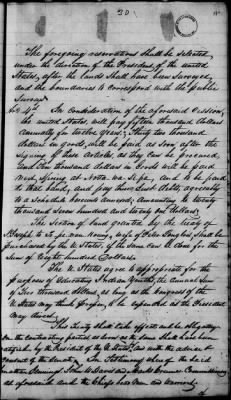 The foregoing reservations shall be selected,
under the direction of the President of the United
States, after the lands shall have been surveyed,
and the boundaries to correspond with the public
Surveys.
In Consideration of the aforesaid Cession,
the United States, will pay fifteen thousand dollars
annually for twelve years; Thirty two thousand
dollars in goods, will be paid as soon after the
signing of these articles, as they can be procured,
and ten thousand dollars in Goods will be paid
next Spring at Nota-wa-si-pa, and to be paid
to that band, and pay their just debts, agreeably
to a Schedule hereunto annexed, amounting to twenty
thousand seven hundred and twenty one dollars.
The section of land granted by the treaty of
St. Joseph to To-pe-nau-koung, wife of Peter Longlois, shall be
purchased by the U. States, if the same can be done for the
Sum of Eight hundred Dollars.
The U. States agree to appropriate for the
purposes of Educating Indian Youths, the annual sum
of Two thousand dollars, as long as the Congress of the
U. States may think proper, to be expended as the President
may direct.
This Treaty shall take effect and be obligatory
on the contracting parties, as soon as the same shall have been
ratified by the President of the U. States, by and with the advice and
consent of the Senate. In Testimony whereof, the said
Jonathan Jennings, John W. Davis and Marks Crume, Commissioners
as aforesaid, and the Chiefs, head Men, and warriors